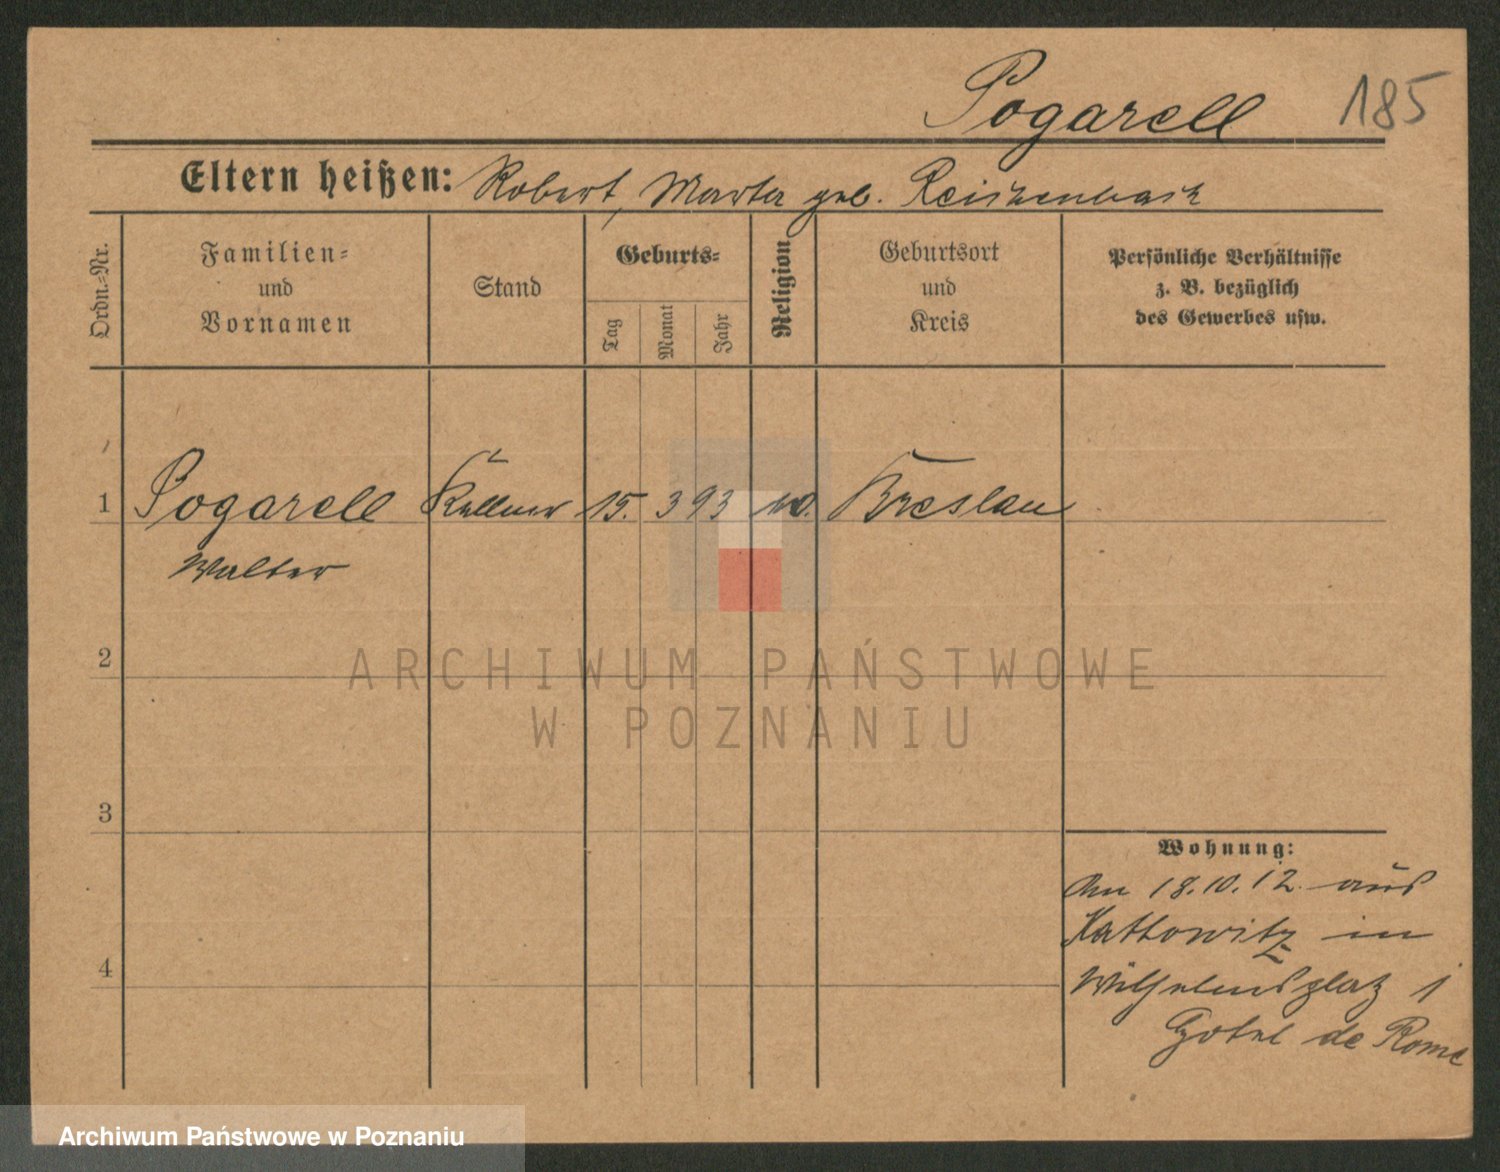 Pogarell 185
Eltern heißen: Robert, Marta geb. Reichenbach
Ordn.-Nr.
Familien-
und
Vornamen
Stand
Geburts-
Tag
Monat
Jahr
Religion
Geburtsort
und
Kreis
Persönliche Verhältnisse
z. B. bezüglich
des Gewerbes usw.
1 Pogarell Kellner 15. 3 93 Breslau
Walter
2
ARCHIWUM PAŃSTWOWE
W POZNANIU
3
Wohnung:
Am 18.10.12. aus
Kattowitz in
4
Wilhelmsplatz 1
Hotel de Rome
Archiwum Państwowe w Poznaniu